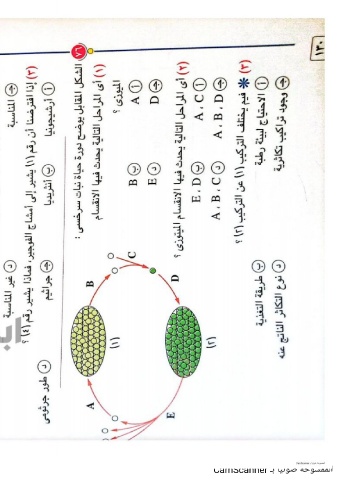 ١٣٠
ج وجود تراكيب تكاثرية
د نوع التكاثر الناتج عنه
أ الاحتياج لبيئة رطبة
ب طريقة التغذية
(٣) فيم يختلف التركيب (١) عن التركيب (٢) ؟
ج A ، B ، D
د A ، B ، C
أ A ، C
ب E ، D
(٢) أى المراحل التالية يحدث فيها الانقسام الميتوزى ؟
ج D
د E
أ A
ب B
الميوزى ؟
(١) أى المراحل التالية يحدث فيها الانقسام
٢٦ الشكل المقابل يوضح دورة حياة نبات سرخسى :
أ أرشيجونيا
ب أنثريديا
ج جراثيم
د طور جرثومى
(٣) إذا افترضنا أن رقم (١) يشير إلى أمشاج الفوجير، فماذا يشير رقم (٤) ؟
ج المناسبة
د غير المناسبة
A
B
C
D
E
(١)
(٢)
الممسوحة ضوئيا بـ CamScanner